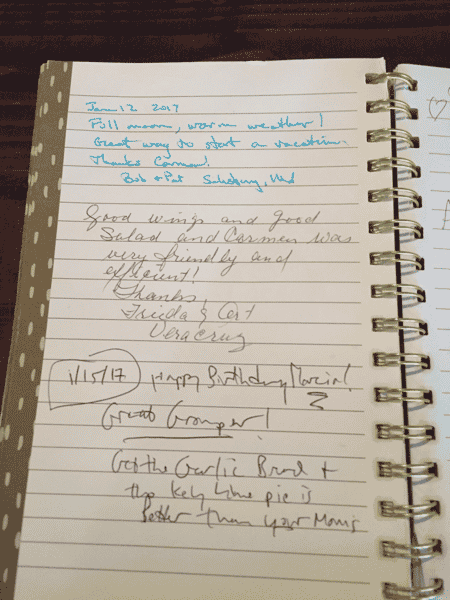 Jan 12 2017
Full moon, warm weather!
Great way to start an vacation.
Thanks Carmen!
Bob + Pat Salisbury, Md
Good wings and good
Salad and Carmen was
very friendly and
efficient!
Thanks,
Frieda & Art
Veracruz
1/15/17 Happy Birthday Marcia!
Great Grouper!
Get the Garlic Bread +
the key lime pie is
Better than your Mom's